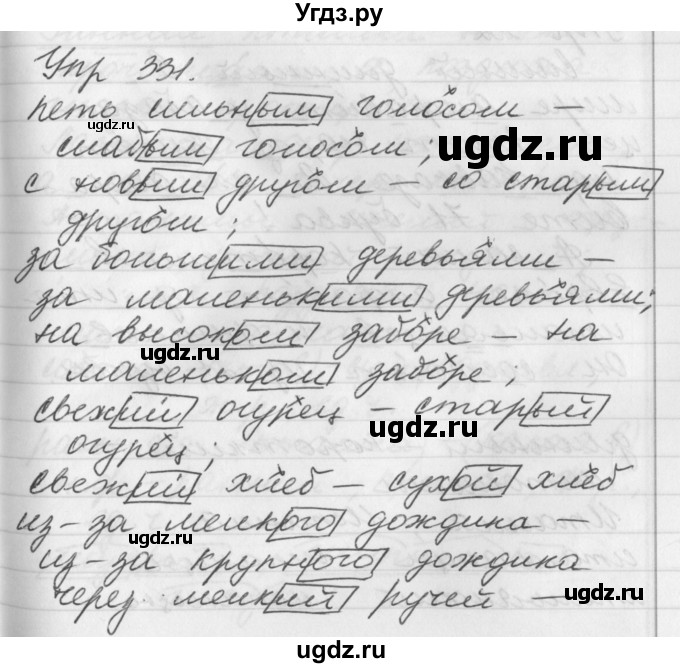 Угдз.ру
Упр 331.
петь сильным голосом –
слабым голосом;
с новым другом – со старым
другом;
за большими деревьями –
за маленькими деревьями;
на высоком заборе – на
маленьком заборе;
свежий огурец – старый
огурец;
свежий хлеб – сухой хлеб
из-за мелкого дождика –
из-за крупного дождика
через мелкий ручей –
ugdz.ru
ugdz.ru
ugdz.ru
ugdz.ru
ugdz.ru
ugdz.ru
ugdz.ru
ugdz.ru